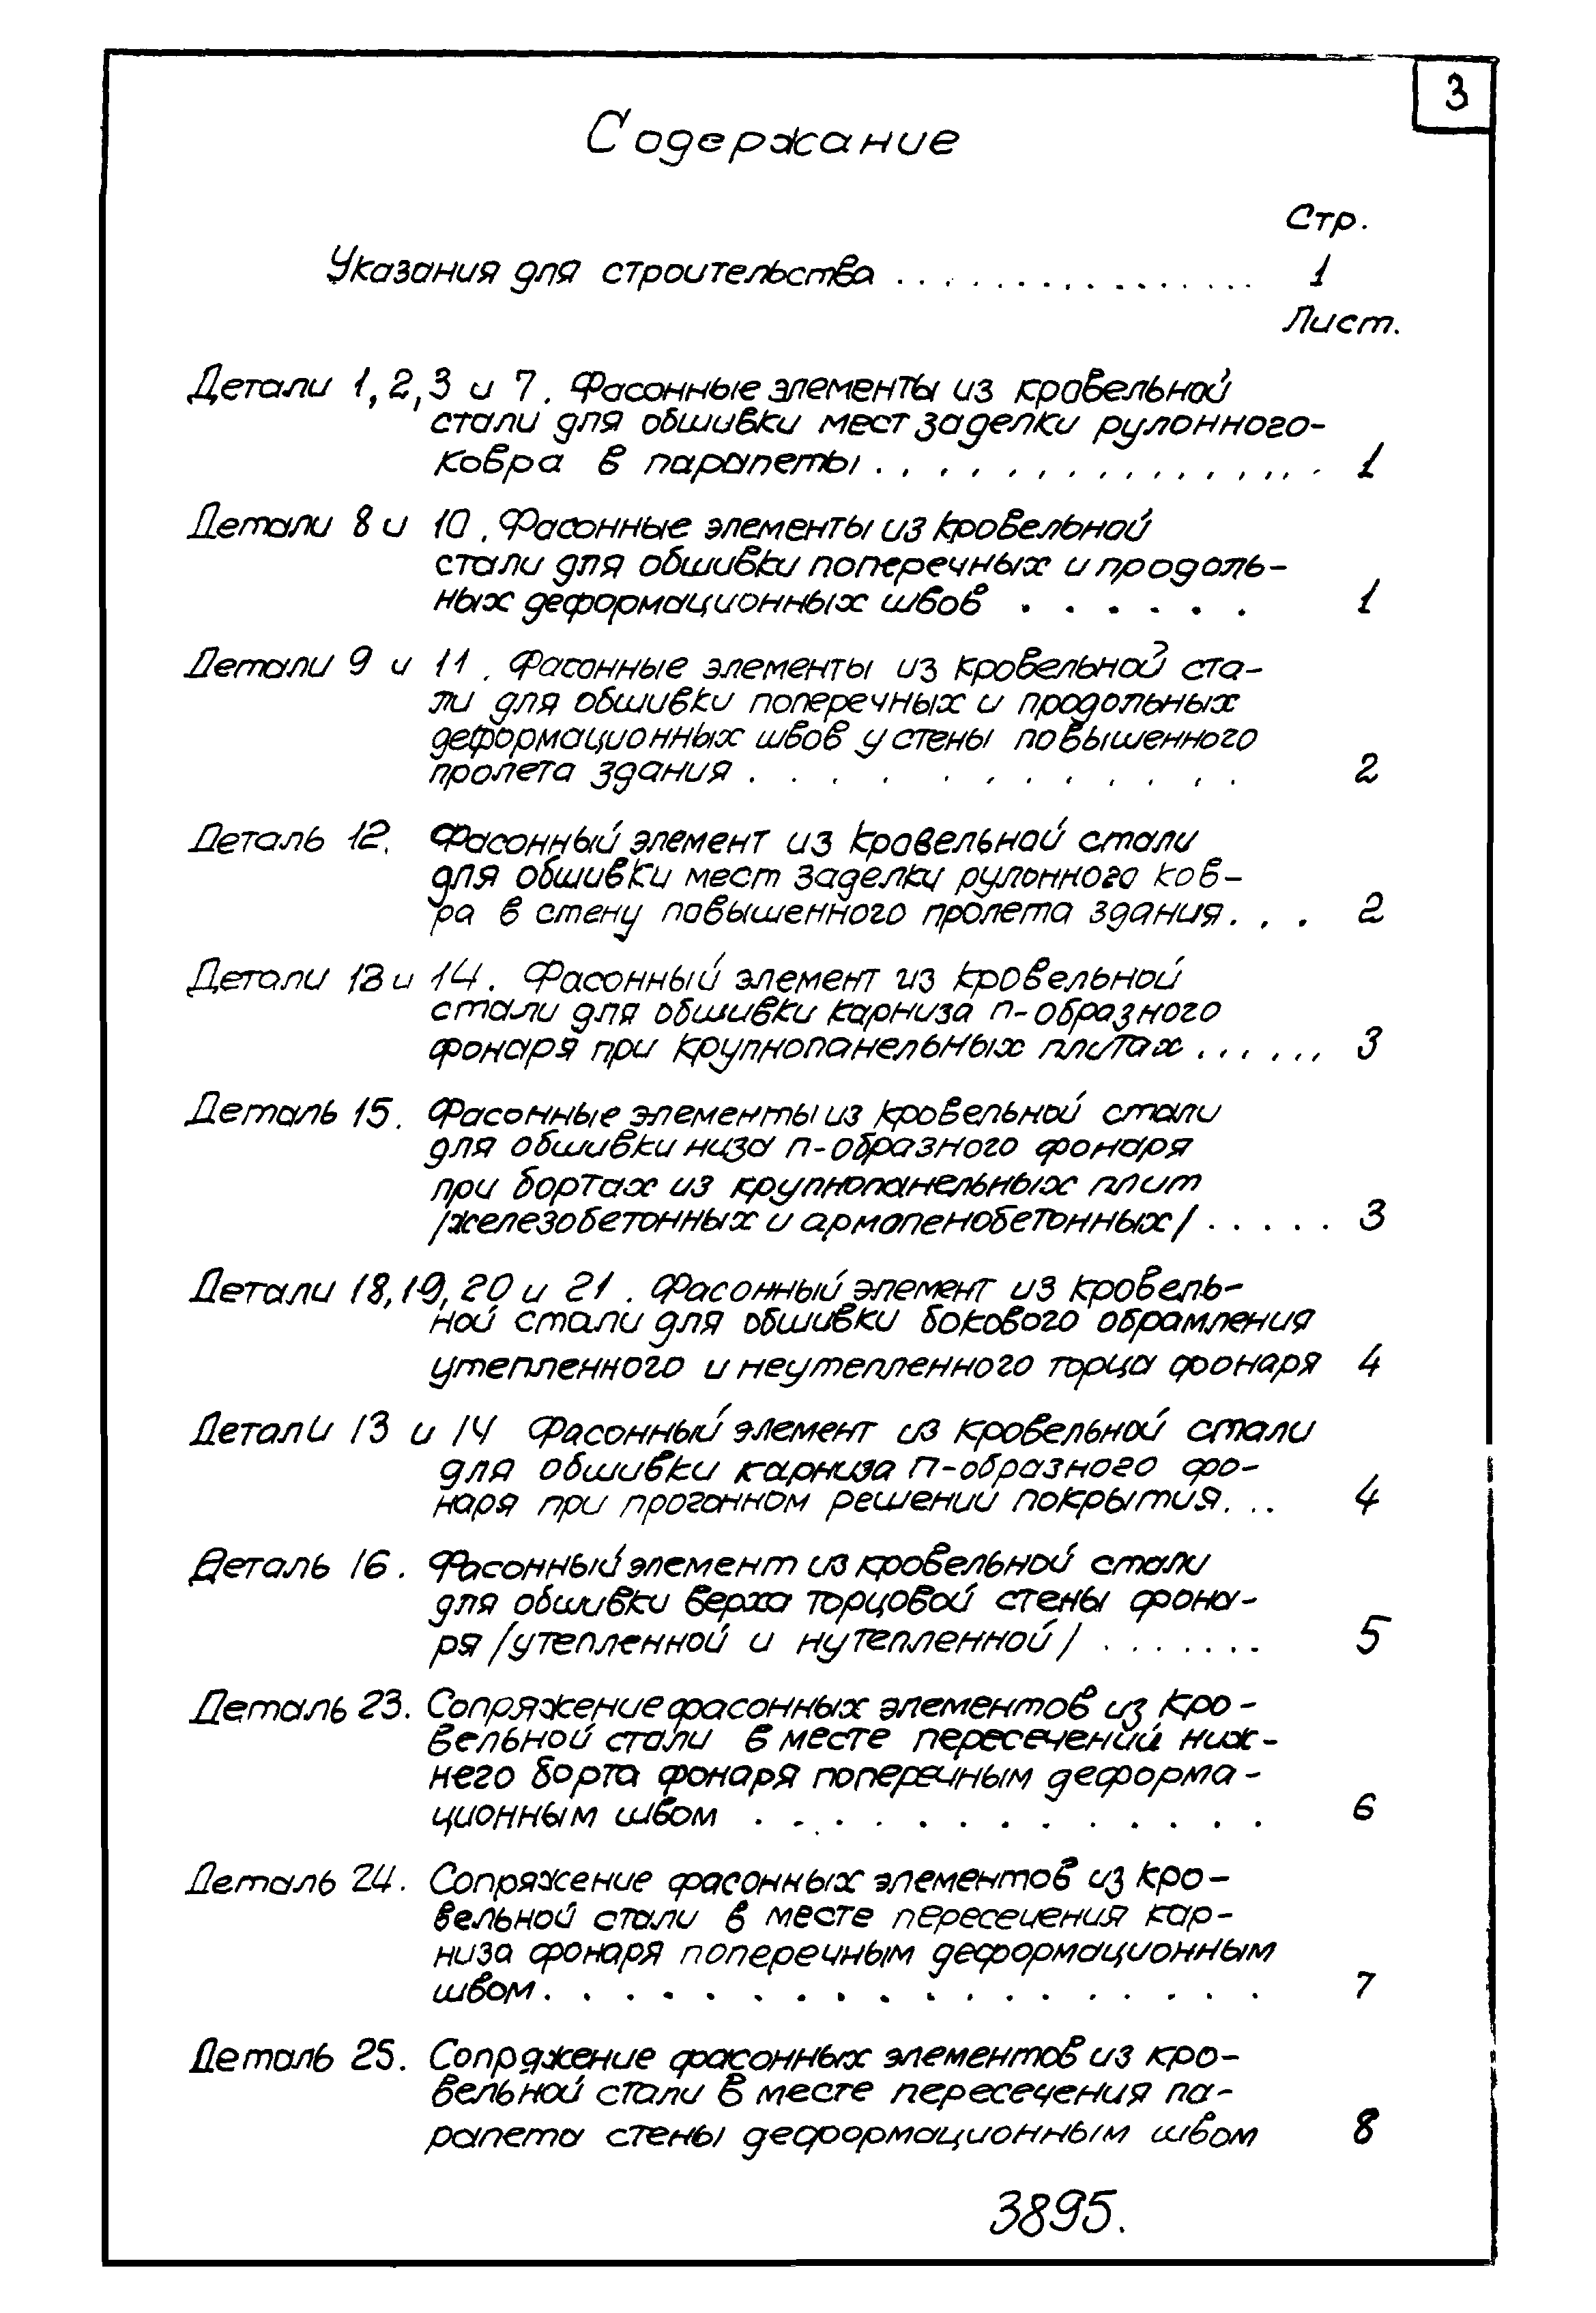 3
Содержание
Стр.
Указания для строительства . . . . . . . . . . . . . . . . 1
Лист.
Детали 1, 2, 3 и 7. Фасонные элементы из кровельной
стали для обшивки мест заделки рулонного-
ковра в парапеты . . . . . . . . . . . . . . . . 1
Детали 8 и 10. Фасонные элементы из кровельной
стали для обшивки поперечных и продоль-
ных деформационных швов . . . . . . 1
Детали 9 и 11. Фасонные элементы из кровельной ста-
ли для обшивки поперечных и продольных
деформационных швов у стены повышенного
пролета здания . . . . . . . . . . . 2
Деталь 12. Фасонный элемент из кровельной стали
для обшивки мест заделки рулонного ков-
ра в стену повышенного пролета здания . . . 2
Детали 13 и 14. Фасонный элемент из кровельной
стали для обшивки карниза п-образного
фонаря при крупнопанельных плитах . . . . . . 3
Деталь 15. Фасонные элементы из кровельной стали
для обшивки низа п-образного фонаря
при бортах из крупнопанельных плит
/железобетонных и армопенобетонных/ . . . . . 3
Детали 18, 19, 20 и 21. Фасонный элемент из кровель-
ной стали для обшивки бокового обрамления
утепленного и неутепленного торца фонаря 4
Детали 13 и 14 Фасонный элемент из кровельной стали
для обшивки карниза п-образного фо-
наря при прогонном решении покрытия. . . 4
Деталь 16. Фасонный элемент из кровельной стали
для обшивки верха торцовой стены фона-
ря /утепленной и нутепленной/ . . . . . . . 5
Деталь 23. Сопряжение фасонных элементов из кро-
вельной стали в месте пересечений ниж-
него борта фонаря поперечным деформа-
ционным швом . . . . . . . . . . . . . 6
Деталь 24. Сопряжение фасонных элементов из кро-
вельной стали в месте пересечения кар-
низа фонаря поперечным деформационным
швом . . . . . . . . . . . . . . . . . . 7
Деталь 25. Сопряжение фасонных элементов из кро-
вельной стали в месте пересечения па-
рапета стены деформационным швом 8
3895.